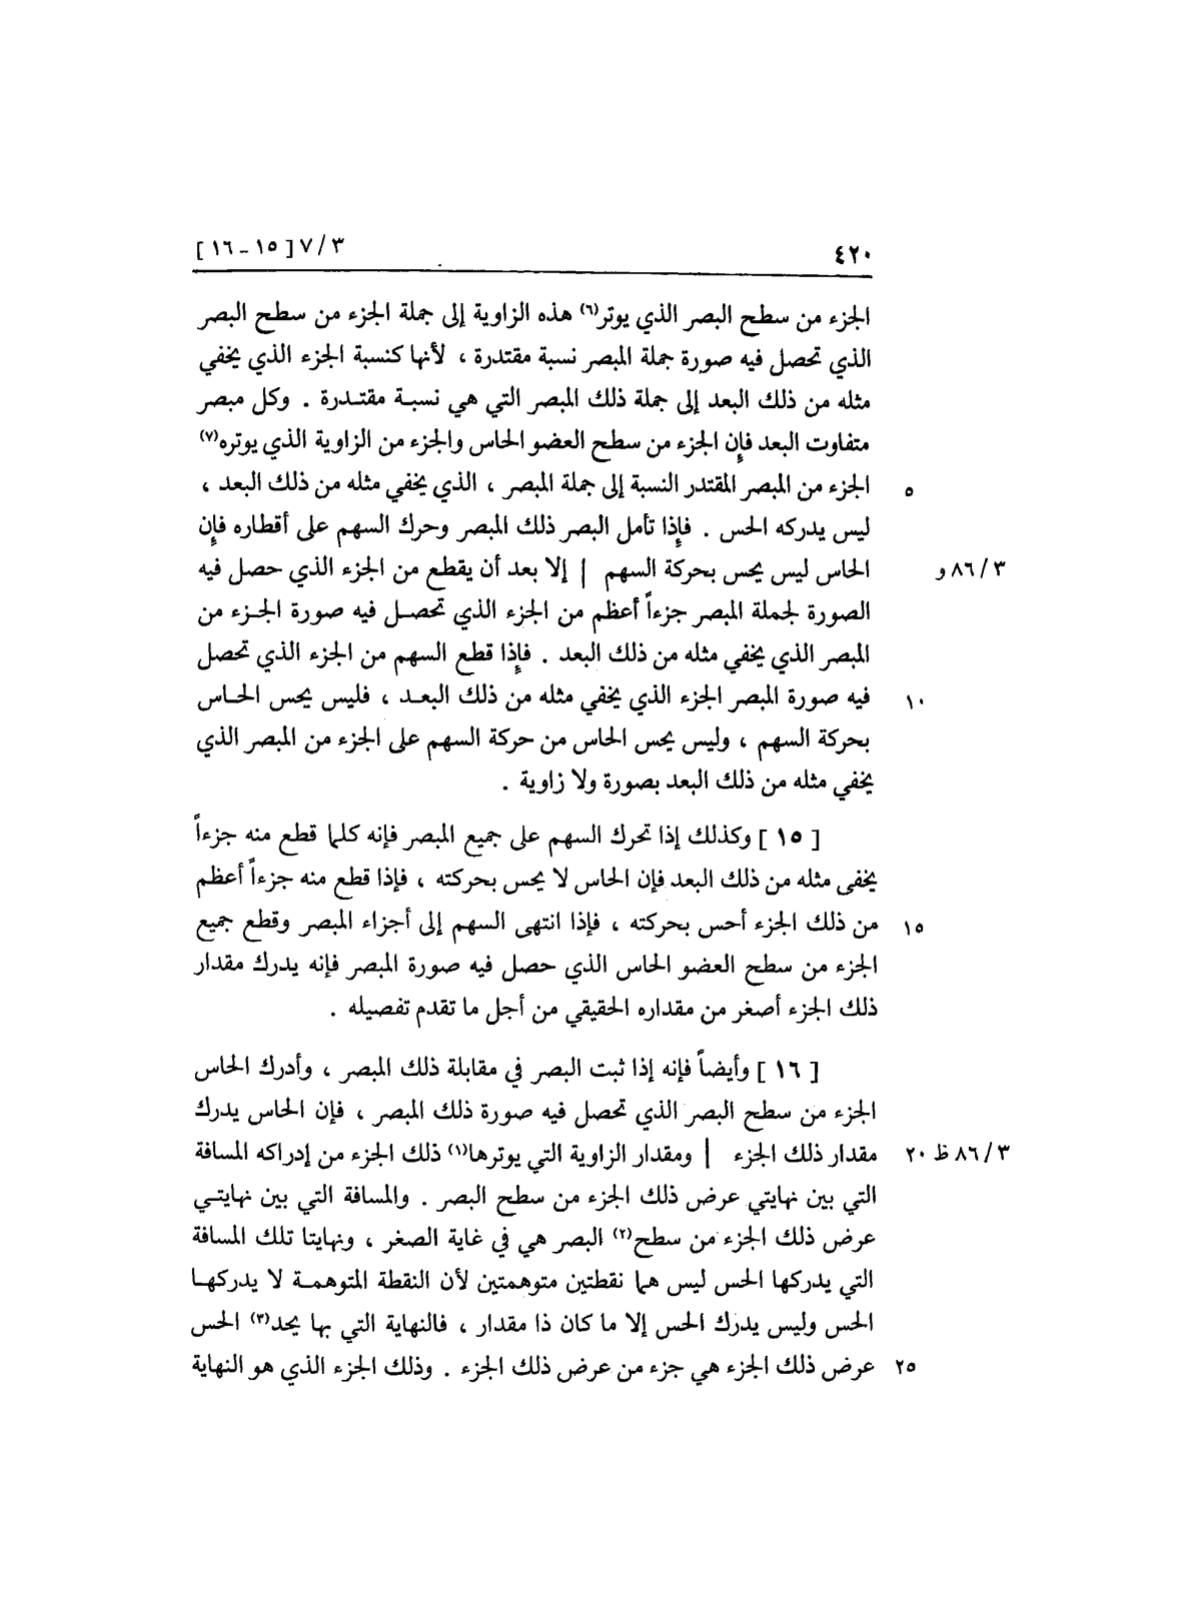 ٤٢٠
٧/٣ [ ١٥ - ١٦ ]
الجزء من سطح البصر الذي يوتر(٦) هذه الزاوية إلى جملة الجزء من سطح البصر
الذي تحصل فيه صورة جملة المبصر نسبة مقتدرة ، لأنها كنسبة الجزء الذي يخفي
مثله من ذلك البعد إلى جملة ذلك المبصر التي هي نسبة مقتدرة . وكل مبصر
متفاوت البعد فإن الجزء من سطح العضو الحاس والجزء من الزاوية الذي يوتره(٧)
الجزء من المبصر المقتدر النسبة إلى جملة المبصر ، الذي يخفي مثله من ذلك البعد ، ٥
ليس يدركه الحس . فإذا تأمل البصر ذلك المبصر وحرك السهم على أقطاره فإن
الحاس ليس يحس بحركة السهم | إلا بعد أن يقطع من الجزء الذي حصل فيه ٨٦/٣ و
الصورة لجملة المبصر جزءاً أعظم من الجزء الذي تحصل فيه صورة الجزء من
المبصر الذي يخفي مثله من ذلك البعد . فإذا قطع السهم من الجزء الذي تحصل
فيه صورة المبصر الجزء الذي يخفي مثله من ذلك البعد ، فليس يحس الحاس ١٠
بحركة السهم ، وليس يحس الحاس من حركة السهم على الجزء من المبصر الذي
يخفي مثله من ذلك البعد بصورة ولا زاوية .
[ ١٥ ] وكذلك إذا تحرك السهم على جميع المبصر فإنه كلما قطع منه جزءاً
يخفى مثله من ذلك البعد فإن الحاس لا يحس بحركته ، فإذا قطع منه جزءاً أعظم
من ذلك الجزء أحس بحركته ، فإذا انتهى السهم إلى أجزاء المبصر وقطع جميع ١٥
الجزء من سطح العضو الحاس الذي حصل فيه صورة المبصر فإنه يدرك مقدار
ذلك الجزء أصغر من مقداره الحقيقي من أجل ما تقدم تفصيله .
[ ١٦ ] وأيضاً فإنه إذا ثبت البصر في مقابلة ذلك المبصر ، وأدرك الحاس
الجزء من سطح البصر الذي تحصل فيه صورة ذلك المبصر ، فإن الحاس يدرك
مقدار ذلك الجزء | ومقدار الزاوية التي يوترها(١) ذلك الجزء من إدراكه المسافة ٢٠ ٨٦/٣ ظ
التي بين نهايتي عرض ذلك الجزء من سطح البصر . والمسافة التي بين نهايتي
عرض ذلك الجزء من سطح(٢) البصر هي في غاية الصغر ، ونهايتا تلك المسافة
التي يدركها الحس ليس هما نقطتين متوهمتين لأن النقطة المتوهمة لا يدركها
الحس وليس يدرك الحس إلا ما كان ذا مقدار ، فالنهاية التي بها يحد(٣) الحس
عرض ذلك الجزء هي جزء من عرض ذلك الجزء . وذلك الجزء الذي هو النهاية ٢٥